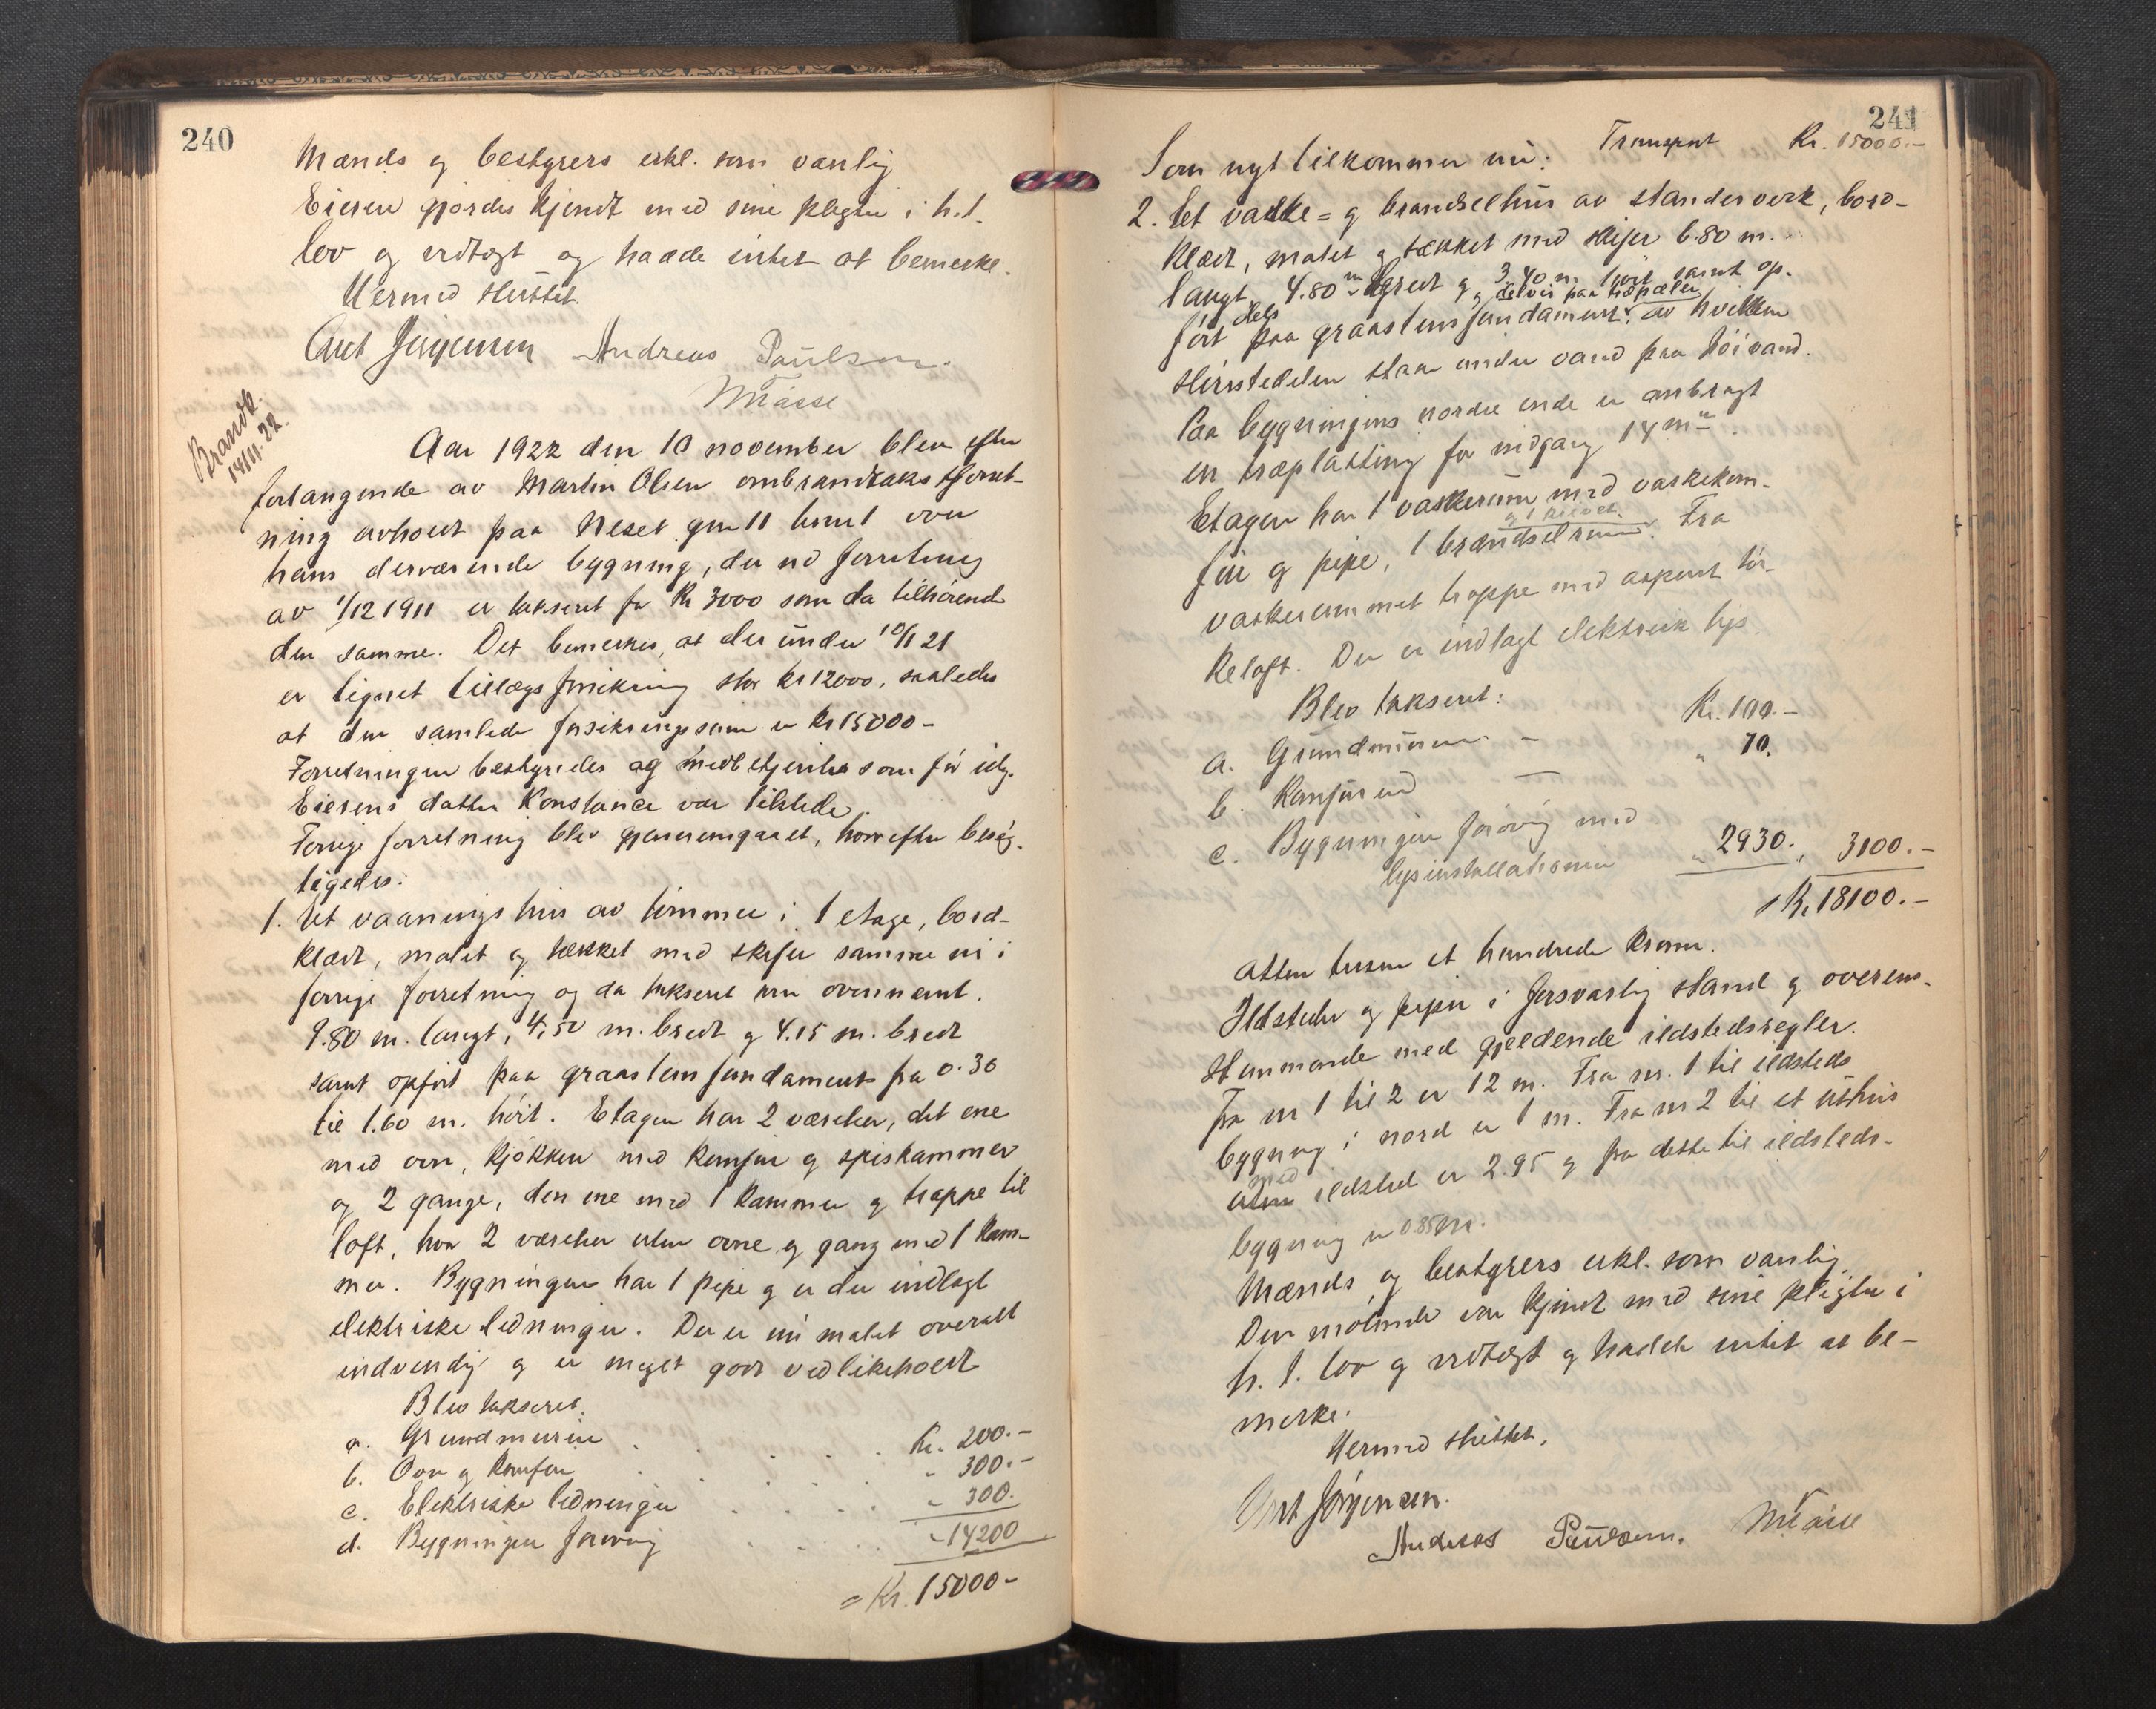 240
Mænds og bestyrers erkl. som vanlig
Eieren gjordes kjendt med sine pligter i h. t.
lov og vedtægt og hadde intet at bemerke.
Hermed sluttet.
Andreas Paulsen.
Brandk.
14/11-22.
Aar 1922 den 10 november blev efter
forlangende av Martin Olsen ombrandtakstforret-
ning avholdt paa Neset gnr 11 brnr 1 over
hans derværende bygning, der ved forretning
av 1/12 1911 er takseret for Kr 3000 som da tilhørende
den samme. Det bemerkes, at der under 10/1 21
er tegnet tillægsforsikring stor kr 12000, saaledes
at den samlede forsikringssum er Kr 15000-
Forretningen bestyredes og medbetjentes som før
Eierens datter Konstance var tilstede.
Forrige forretning blev gjennemgaaet, hvorefter besig-
tigedes:
1. Et vaaningshus av tømmer i 1 etage, bord-
klædt, malet og tækket med skifer samme i
forrige forretning og da takseret som ovennævnt.
9.80 m. langt, 4,50 m. bredt og 4.15 m. bredt
samt opført paa graastensfundament fra 0.30
til 1.60 m. høit. Etagen har 2 værelser, det ene
med ovn, kjøkken med komfur og spiskammer
og 2 gange, den ene med 1 kammer og trappe til
loft, hvor 2 værelser uten ovne og gang med 1 kam-
mer. Bygningen har 1 pipe og er der indlagt
elektriske ledninger. Der er nu malet overalt
indvendig og er meget godt vedlikeholdt
Blev takseret.
a. Grundmuren . . . Kr. 200.-
b. Ovn og komfur . . . " 300.-
c. Elektriske ledninger . . . " 300.
d. Bygningen forøvrig . . . " 14200
= Kr. 15000-
241
Transport Kr. 15000.-
Som nyt tilkommer nu:
2. Et vaske= og brændselhus av standerverk, bord-
klædt, malet og tækket med skifer 6.80 m.
langt, 4.80 m bredt og 3.40 m. høit samt op-
ført dels paa graastensfundament og delvis paa træpæler av hvilken
størstedelen staar under vand paa høivand.
Paa bygningens nordre ende er anbragt
en træplatting for nedgang 14 m²
Etagen har 1 vaskerum med vaskekom-
fur og pipe, 1 brændselrum og 1 Fra
vaskerummet trappe med aapent tør-
keloft. Der er indlagt elektrisk lys
Blev takseret:
a. Grundmuren - Kr. 100.-
b. Komfuren — " 70.
c. Bygningen forøvrig med
lysinstallationen " 2930. " 3100.-
Kr. 18100.-
Atten tusen et hundrede kroner.
Ildsteder og piper i forsvarlig stand og overens-
stemmende med gjældende ildstedsregler.
Fra nr 1 til 2 er 12 m. Fra nr. 1 til ildsteds
bygning i nord er 1 m. Fra nr 2 til et uthus
uten med ildsted er 2.95 og fra dette til ildsteds-
bygning er 0.85 m.
Mænds og bestyrers erkl. som vanlig.
Den møtende var kjendt med sine pligter i
h. t. lov og vedtægt og hadde intet at be-
merke.
Hermed sluttet.
Jørgensen.
Andreas Paulsen.